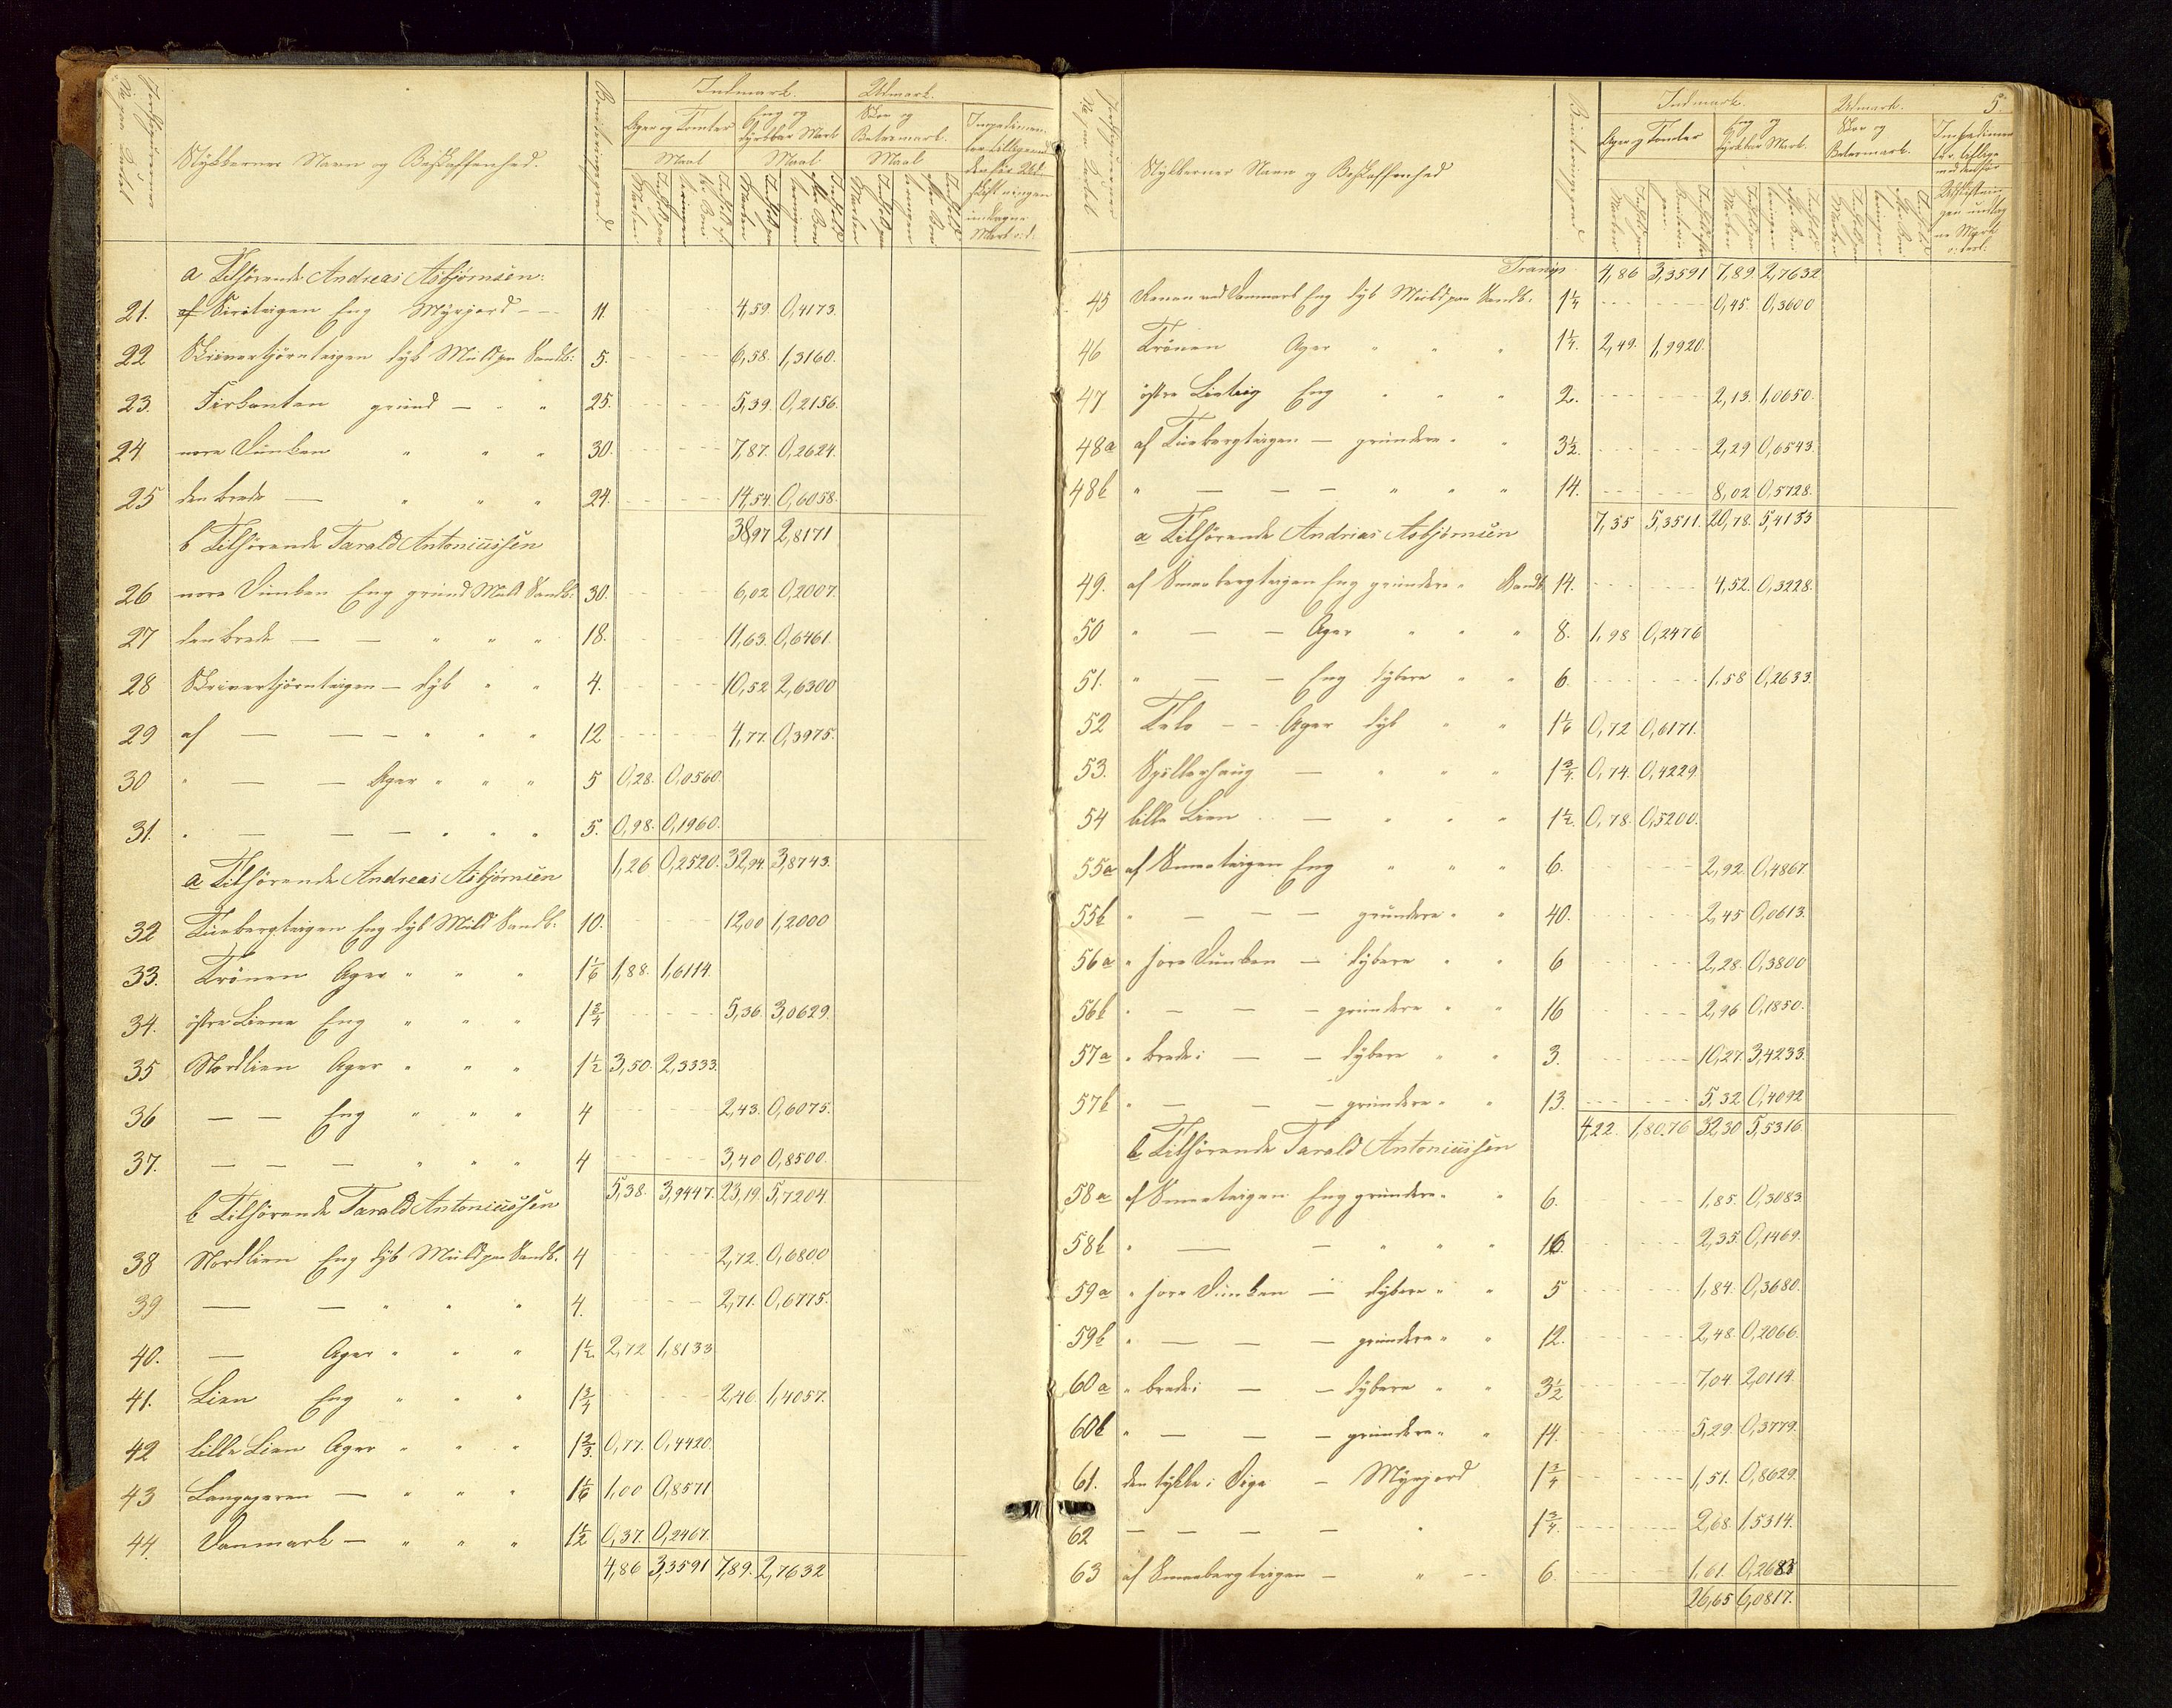 Stykkernes Navn og Beskaffenhed.
Boniteringsgrad
Indmark. Udmark.
Ager og Tomter Eng og dyrkbar Mark Skov og Betesmark.
Maal Maal Maal
a Tilhörende Andreas Asbjørnsen:
21. af Eng Myrjord 11. 4,59. 0,4173.
22 Skrivertjörnteigen dyb Muld paa Sandb: 5. 6,58. 1,3160.
23. Firkanten grund — " " 25. 5,39. 0,2156.
24 nore Dunken " " " 30. 7,87. 0,2624.
25 den brede — " " " 24. 14,54. 0,6058.
38,97 2,8171
b Tilhörende Tarald Antoniussen
26 nore Dunken Eng grund Muld Sandb: 30. 6,02 0,2007.
27 den brede — — " " " 18. 11,63. 0,6461.
28 Skrivertjörnteigen — dyb " " 4. 10,52 2,6300
29 af — — — " " " 12 4,77. 0,3975.
30 " — — Ager " " " 5 0,28. 0,0560.
31. " — — — " " " 5. 0,98. 0,1960.
1,26 0,2520. 32,94. 3,8743.
a Tilhörende Andreas Asbjørnsen
32 Tuebergteigen Eng dyb Muld Sandb. 10. 12,00 1,2000
33. Krönen Ager " " " 1 1/6 1,88. 1,6114.
34. östre Liene Eng " " " 1 3/4 5,36. 3,0629.
35 Nordlien Ager " " " 1 1/2 3,50. 2,3333.
36 — — Eng " " " 4 2,43. 0,6075.
37. — — — " " " 4 3,40 0,8500.
5,38. 3,9447. 23,19. 5,7204.
b Tilhörende Tarald Antoniussen
38 Nordlien Eng dyb Muld paa Sandb. 4 2,72. 0,6800
39 — — " " " 4. 2,71. 0,6775.
40. — Ager " " " 1 1/2 2,72 1,8133
41. Lien Eng " " " 1 3/4 2,46. 1,4057.
42 lille Lien Ager " " " 1 2/3. 0,77. 0,4420.
43 Langageren — " " " 1 1/6 1,00 0,8571
44. Danmark — " " " 1 1/2 0,37. 0,2467.
4,86 3,3591 7,89. 2,7632
5
Stykkernes Navn og Beskaffenhed
Boniteringsgrad
Indmark. Udmark.
Ager og Tomter Eng og dyrkbar Mark. Skov og Betesmark.
Transp. 4,86 3,3591 7,89. 2,7632
45 Renen ved Danmark Eng dyb Muld paa Sandb. 1 1/4 0,45. 0,3600
46 Krönen Ager " " " 1 1/4. 2,49. 1,9920.
47 östre Lieteig Eng " " " 2. 2,13. 1,0650.
48a af Tuebergteigen — grundere " " 3 1/2. 2,29 0,6543.
48b " — — — " " " 14. 8,02 0,5728.
7,35 5,3511. 20,78. 5,4133
a Tilhörende Andrias Asbjørnsen
49. af Smaabergteigen Eng grundere " Sandb. 14. 4,52. 0,3228.
50 " — — Ager " " " 8. 1,98 0,2476
51. " — — Eng dybere " " 6. 1,58 0,2633.
52 — — Ager dyb " " 1 1/6 0,72 0,6171.
53. Spillerhaug — " " " 1 3/4. 0,74. 0,4229.
54 lille Lien — " " " 1 1/2. 0,78. 0,5200.
55a af Smaateigen Eng " " " 6. 2,92. 0,4867.
55b " — — — grundere " " 40. 2,45 0,0613.
56a " söre Dunken — dybere " " 6 2,28. 0,3800
56b " — — — grundere " " 16 2,96 0,1850.
57a " brede: — — dybere " " 3. 10,27. 3,4233.
57b " — — — grundere " " 13. 5,32 0,4092
4,22. 1,80.76 32,30 5,5316
b Tilhörende Tarald Antoniussen
58a af Smaateigen Eng grundere " " 6. 1,85. 0,3083.
58b " — — " " " 16. 2,35. 0,1469.
59a " söre Dunken — dybere " " 5 1,84. 0,3680.
59b " — — — grundere " " 12. 2,48. 0,2066.
60a " brede: — — dybere " " 3 1/2 7,04. 2,0114.
60b " — — — grundere " " 14. 5,29. 0,3779.
61. den tykke: Dige — Myrjord 1 3/4 1,51. 0,8629.
62 — — — — " 1 3/4. 2,68. 1,5314.
63 af Smaabergteigen — " 6. 1,61. 0,2683
26,65 6,0817.